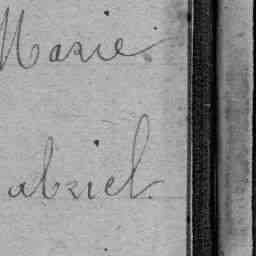 Marie.
abriel.